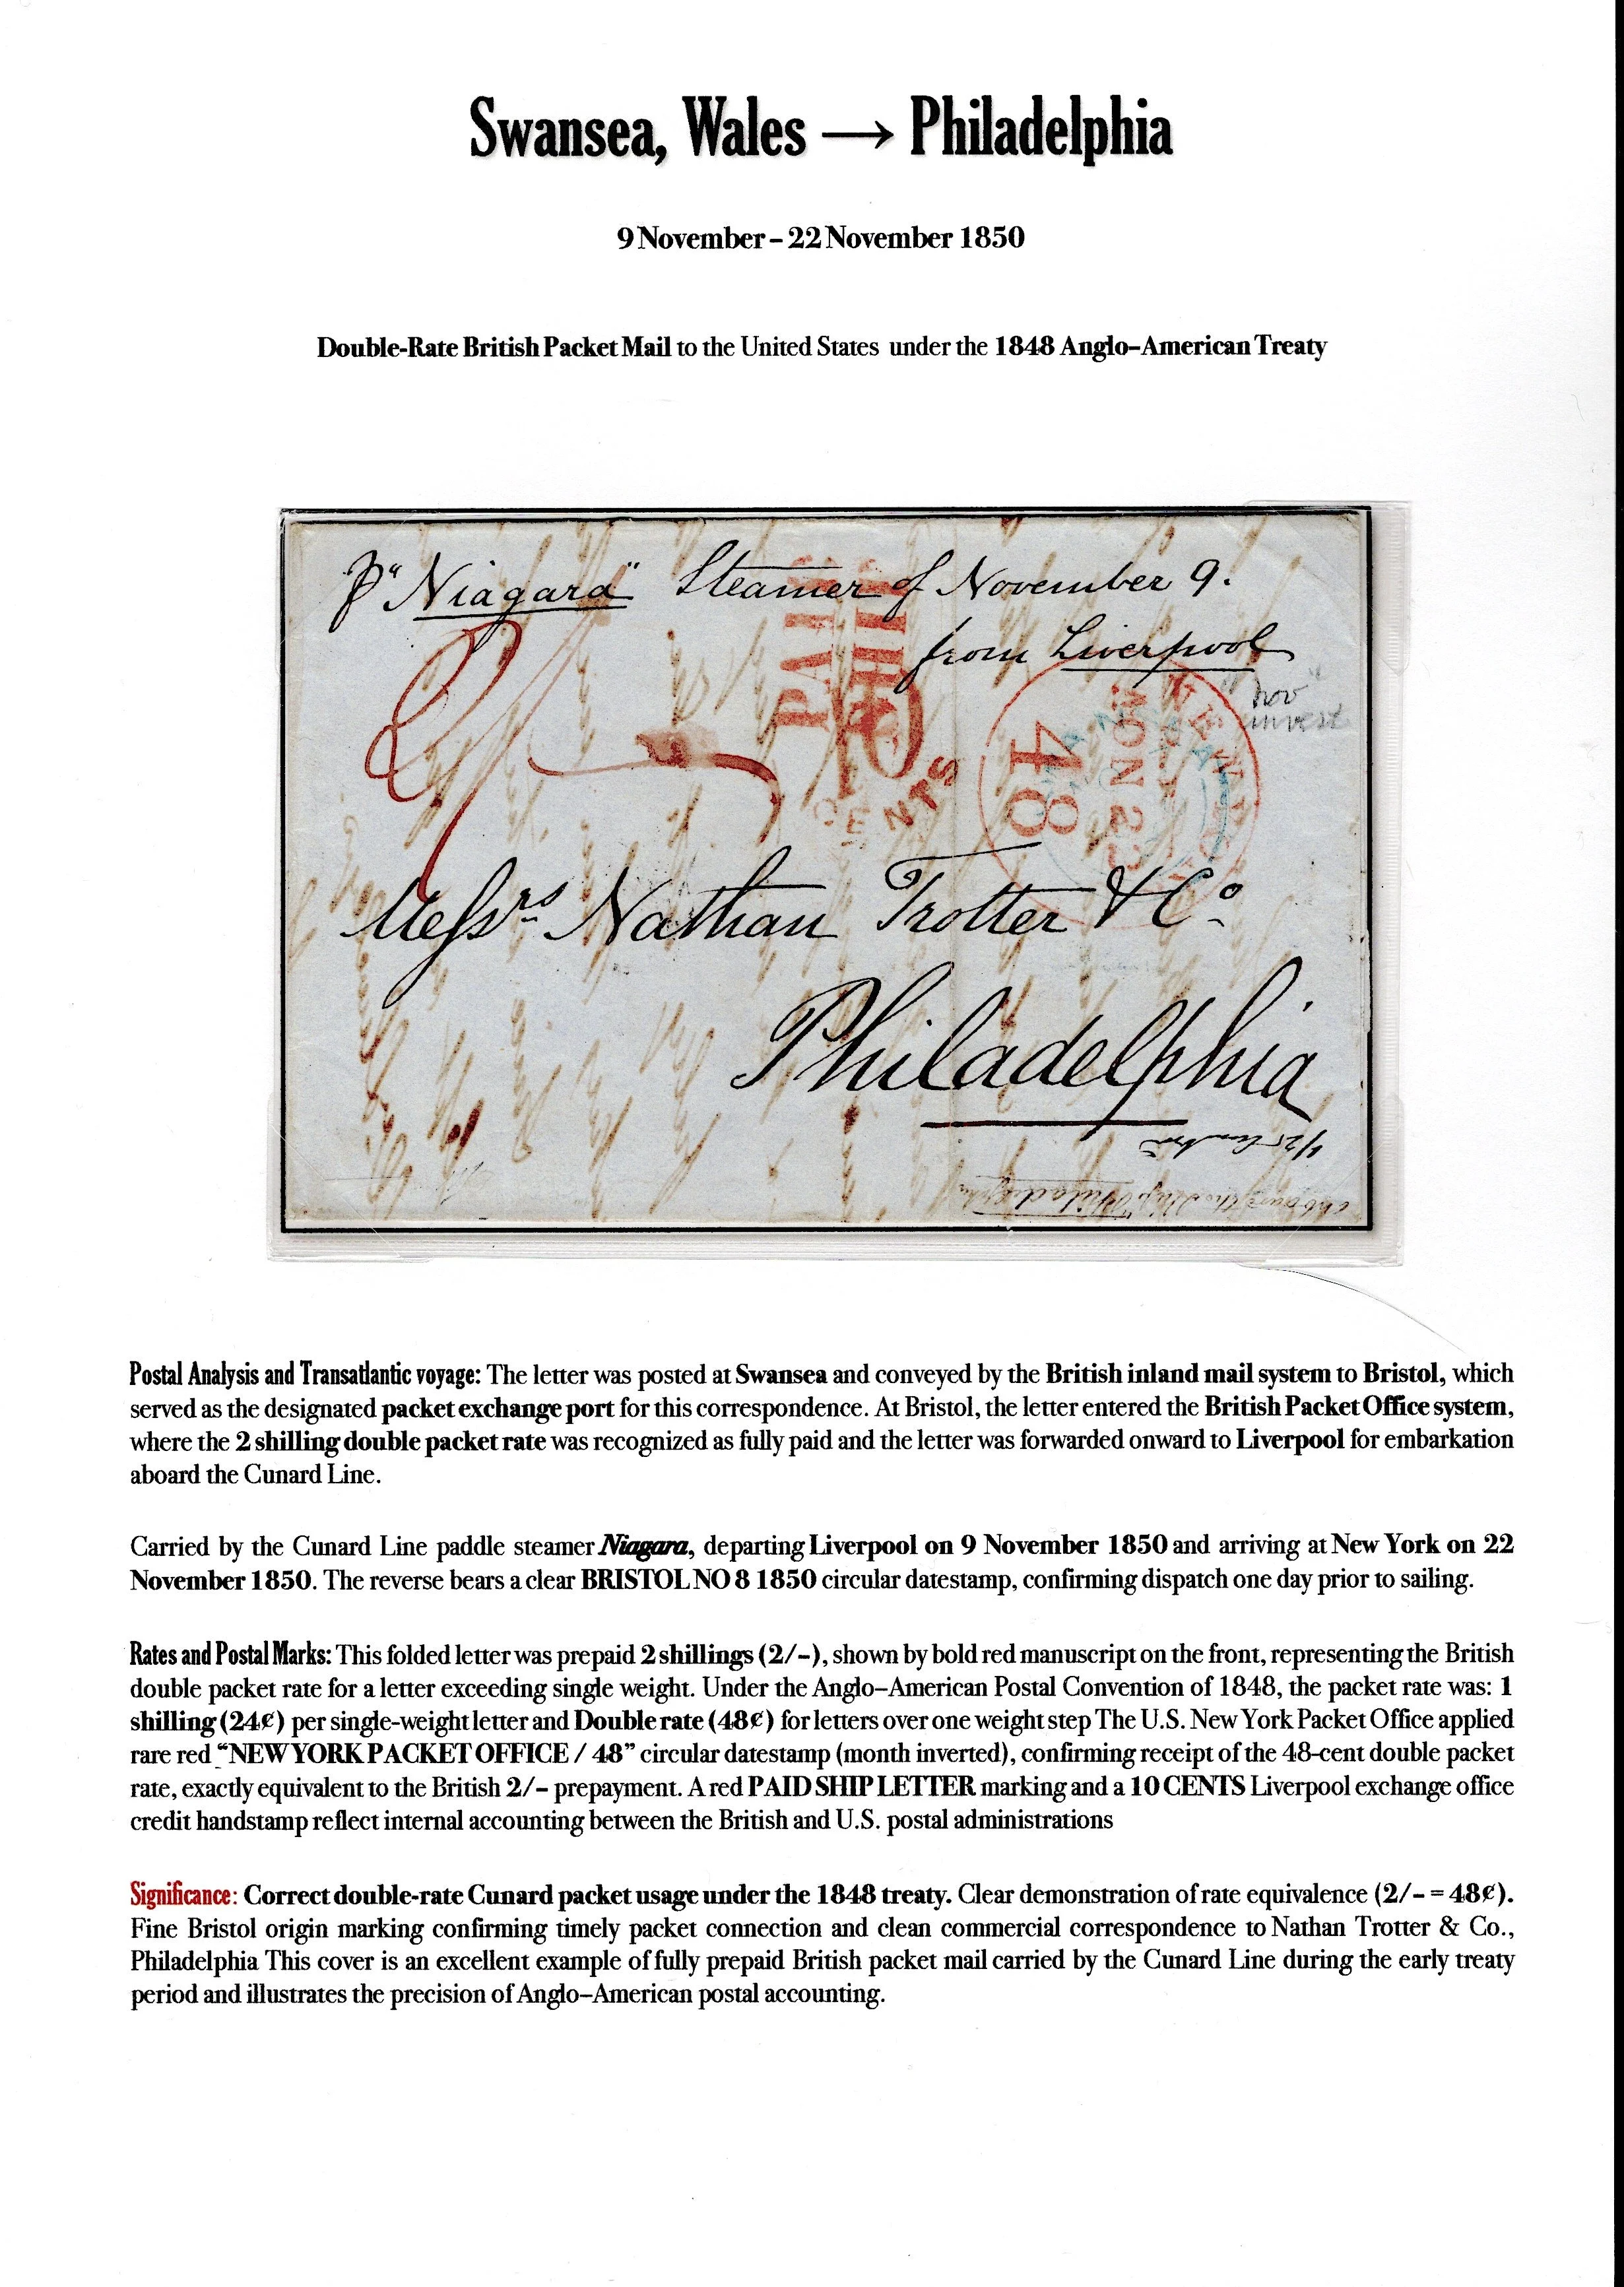 Swansea, Wales → Philadelphia
9 November – 22 November 1850
Double-Rate British Packet Mail to the United States under the 1848 Anglo–American Treaty
P "Niagara" Steamer of November 9.
from Liverpool
"nov"
invest
2/-
PAID
SHIP
10
CENTS
NEW YORK
NOV 22
48
Messrs Nathan Trotter & Co.
Philadelphia
Postal Analysis and Transatlantic voyage: The letter was posted at Swansea and conveyed by the British inland mail system to Bristol, which
served as the designated packet exchange port for this correspondence. At Bristol, the letter entered the British Packet Office system,
where the 2 shilling double packet rate was recognized as fully paid and the letter was forwarded onward to Liverpool for embarkation
aboard the Cunard Line.
Carried by the Cunard Line paddle steamer Niagara, departing Liverpool on 9 November 1850 and arriving at New York on 22
November 1850. The reverse bears a clear BRISTOL NO 8 1850 circular datestamp, confirming dispatch one day prior to sailing.
Rates and Postal Marks: This folded letter was prepaid 2 shillings (2/-), shown by bold red manuscript on the front, representing the British
double packet rate for a letter exceeding single weight. Under the Anglo–American Postal Convention of 1848, the packet rate was: 1
shilling (24¢) per single-weight letter and Double rate (48¢) for letters over one weight step The U.S. New York Packet Office applied
rare red "NEW YORK PACKET OFFICE / 48" circular datestamp (month inverted), confirming receipt of the 48-cent double packet
rate, exactly equivalent to the British 2/- prepayment. A red PAID SHIP LETTER marking and a 10 CENTS Liverpool exchange office
credit handstamp reflect internal accounting between the British and U.S. postal administrations
Significance: Correct double-rate Cunard packet usage under the 1848 treaty. Clear demonstration of rate equivalence (2/- = 48¢).
Fine Bristol origin marking confirming timely packet connection and clean commercial correspondence to Nathan Trotter & Co.,
Philadelphia This cover is an excellent example of fully prepaid British packet mail carried by the Cunard Line during the early treaty
period and illustrates the precision of Anglo–American postal accounting.